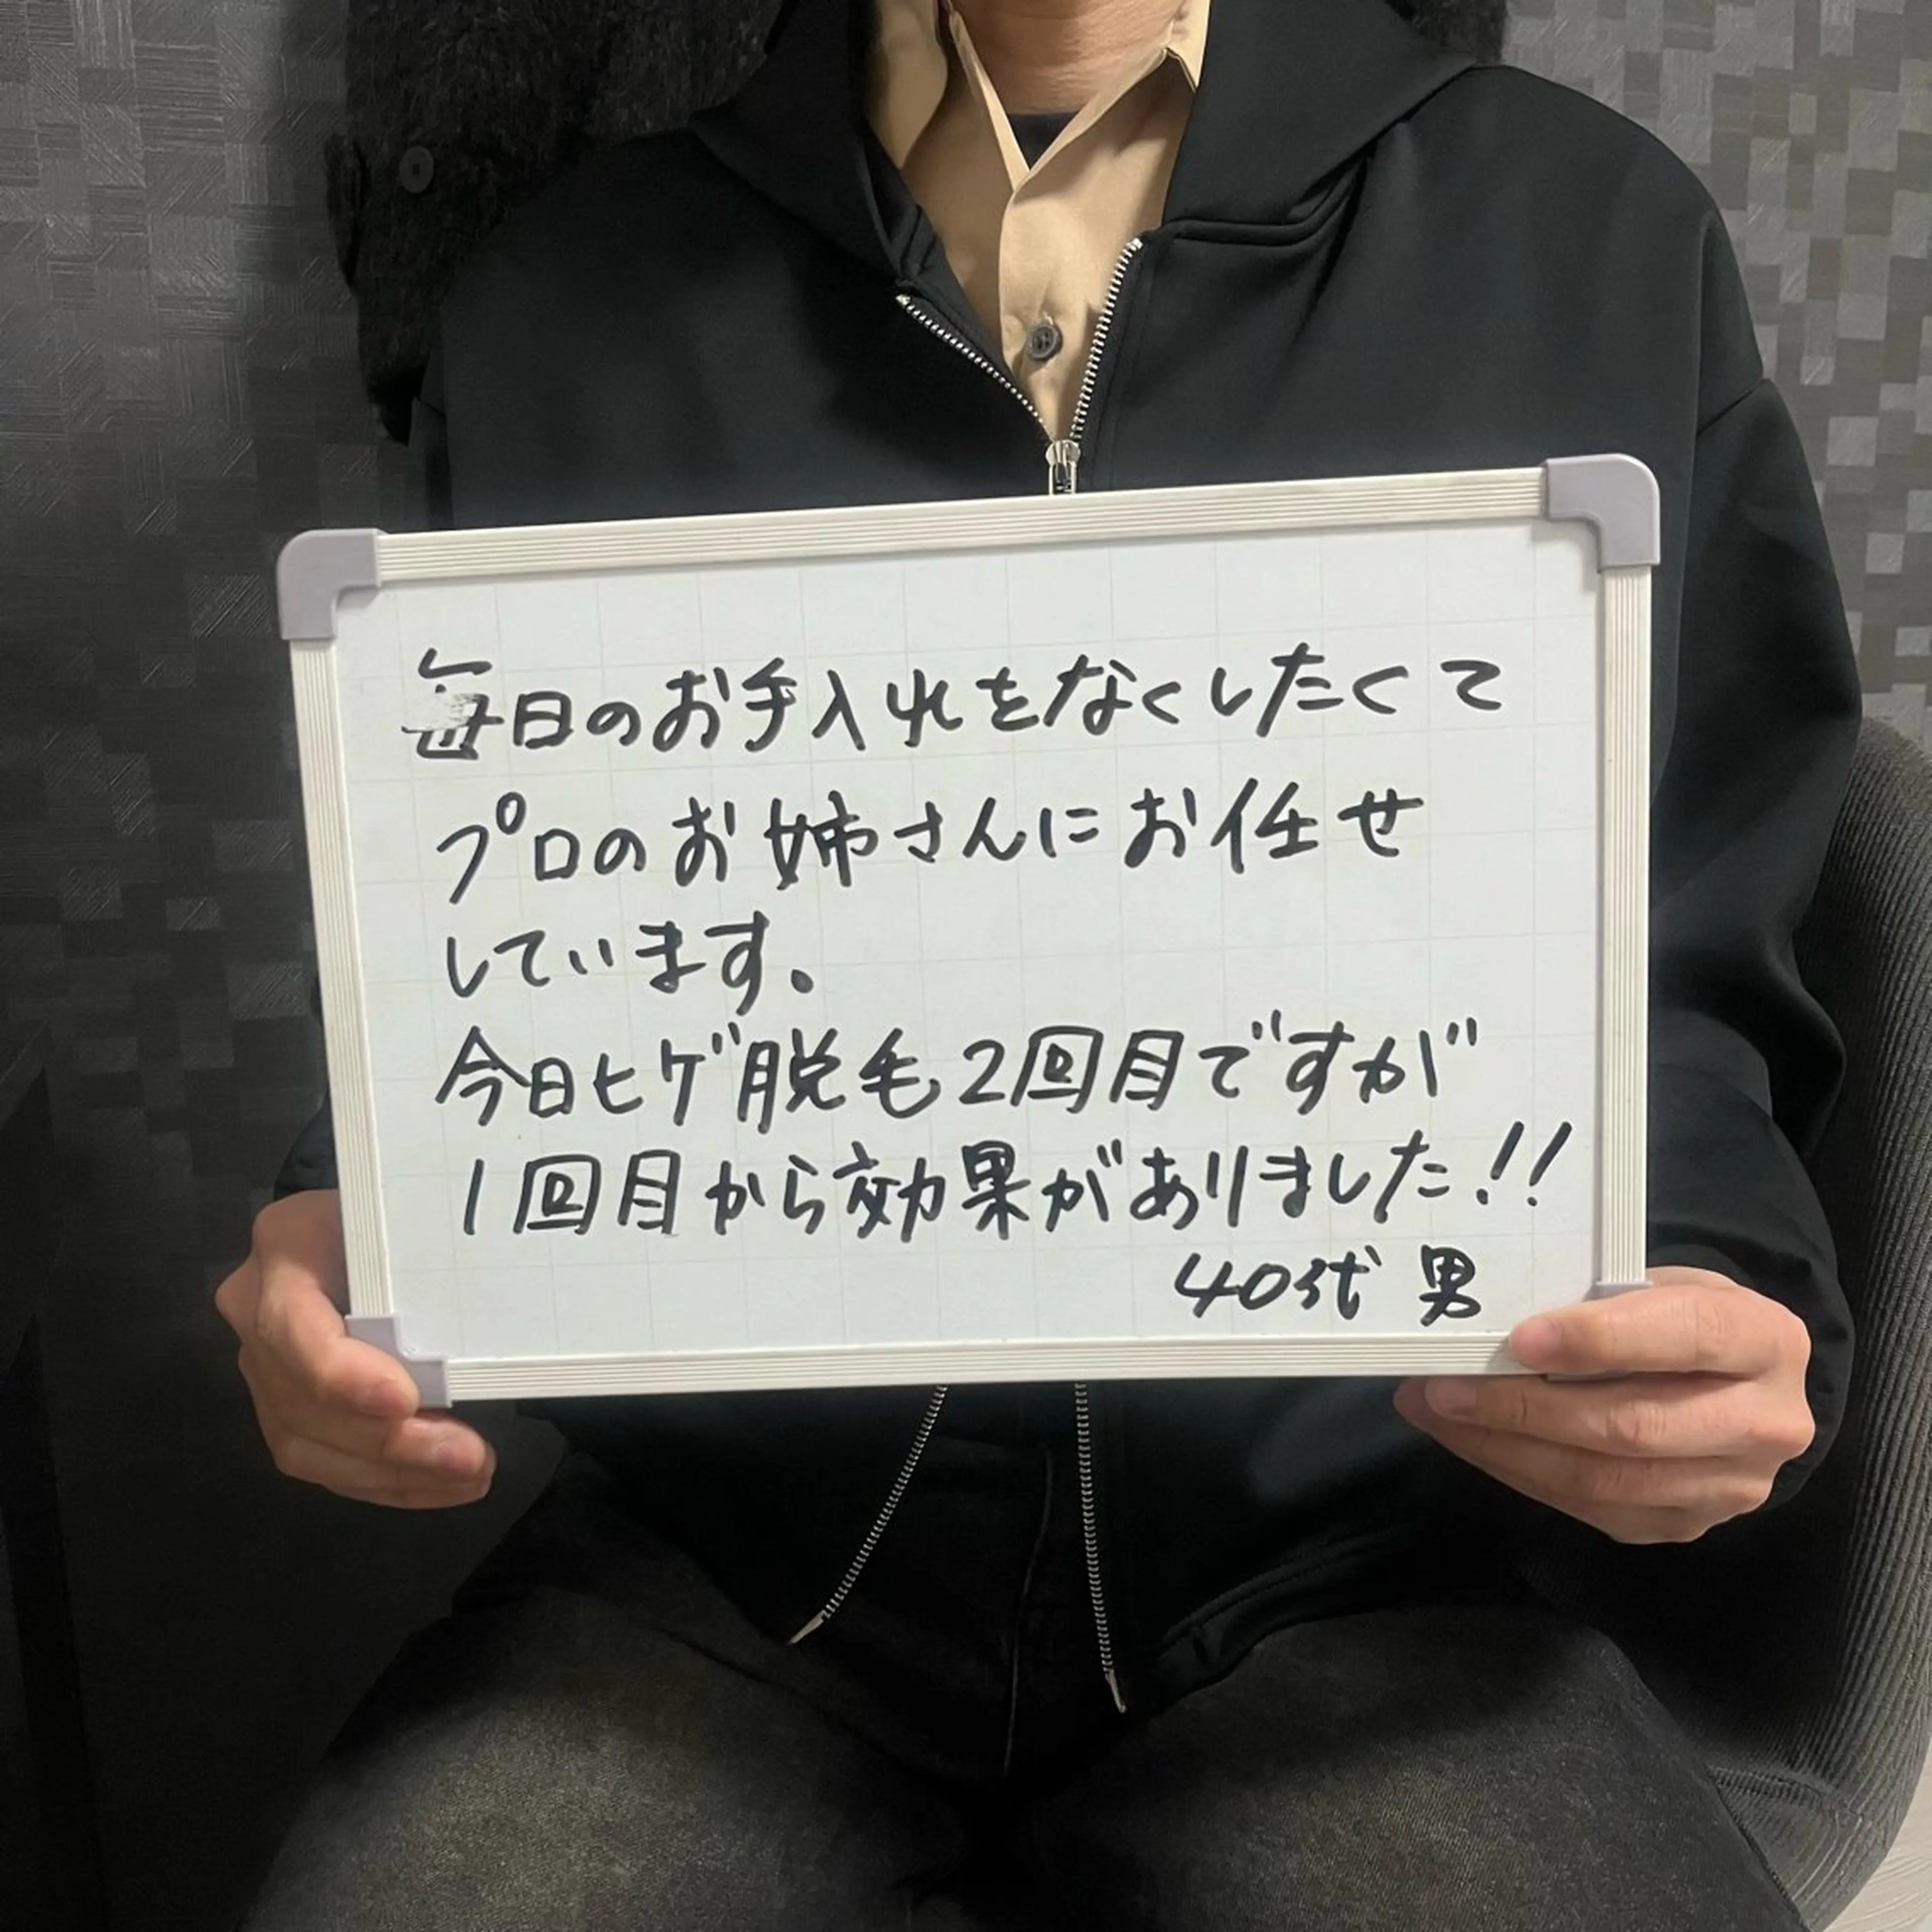 毎日のお手入れをなくしたくて
プロのお姉さんにお任せ
しています。
今日ヒゲ脱毛2回目ですが
1回目から効果がありました!!
40代 男